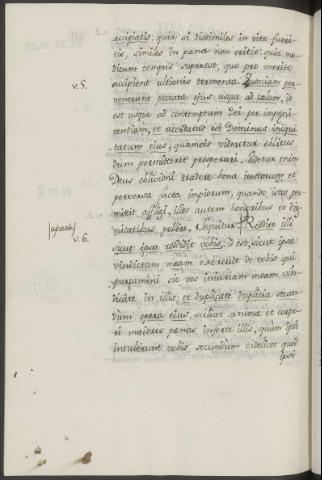 accipiatis: quia si dissimiles in vita fueri-
tis, similes in pœna non eritis: quia mo-
dicum tempus superest, quo pro merito
accipient ultionis tormenta. Quoniam per-
v. 5.
venerunt peccata ejus usque ad cœlum, id
est usque ad contemptum Dei per impœni-
tentiam, et recordatus est Dominus iniqui-
tatum ejus, quamvis videretur delictus
dum permitteret prosperari. Videtur enim
Deus oblivioni tradere bona iustorum et
perversa facta impiorum, quando istos per-
mittit affligi, illos autem honoribus et di-
gnitatibus pollere. Sequitur: Reddite illi
v. 6.
sicut ipsa reddidit vobis, id est, sicut ipsa
vindictam meam exercuit de vobis qui
sic vos iniuriam meam vin-
dicate in illis: et duplicate duplicia secun-
dum opera ejus, scilicet animæ et corpo-
ri maiores pœnas inferte illis, quam ipsi
intulerunt vobis, secundum videlicet quod
ipsi